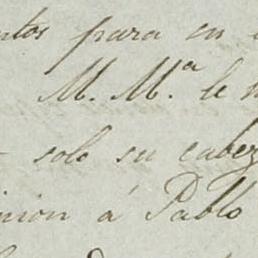 ntos para en
M. M.ª le
solo su cabez
inion á Pablo